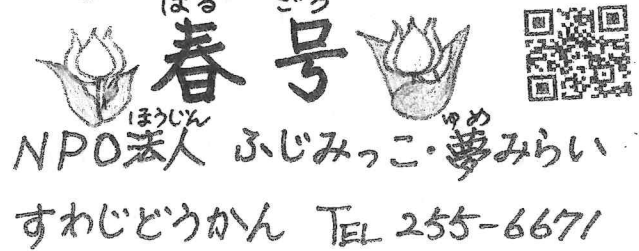 はる ごう
春号
ほうじん ゆめ
NPO法人 ふじみっこ・夢みらい
すわじどうかん TEL 255-6671